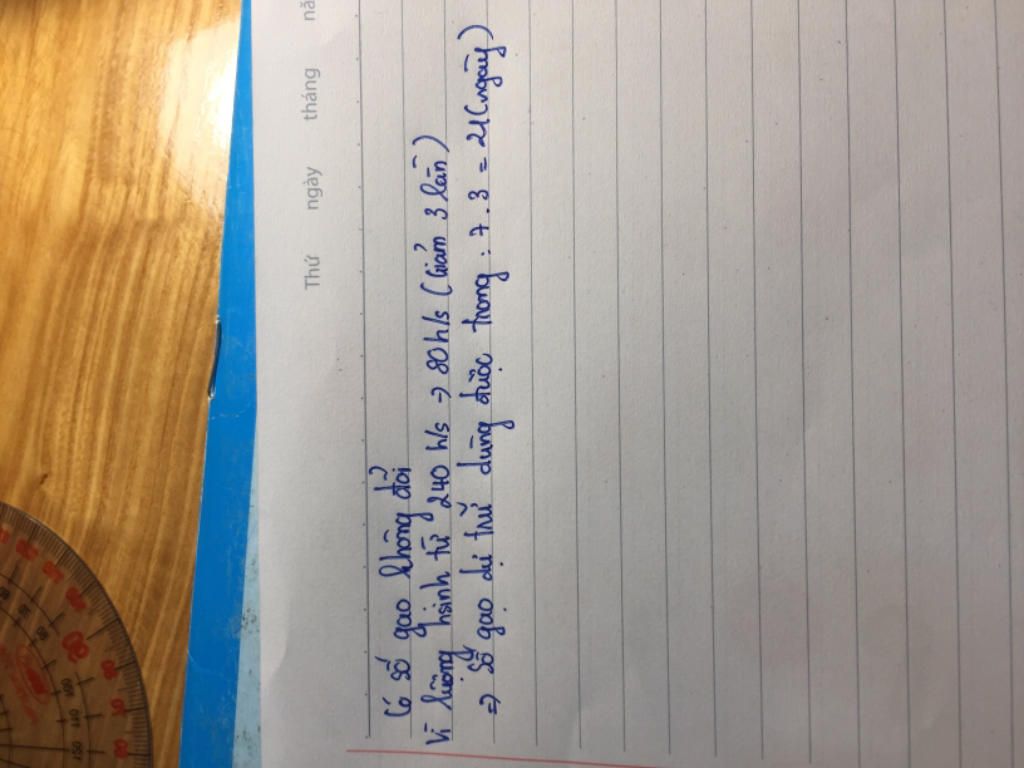 Thứ ngày tháng nă
Có số gạo không đổi
Vì lượng hsinh từ 240 h/s → 80 h/s (Giảm 3 lần)
=> Số gạo dự trữ dùng được trong : 7 . 3 = 21 (ngày)